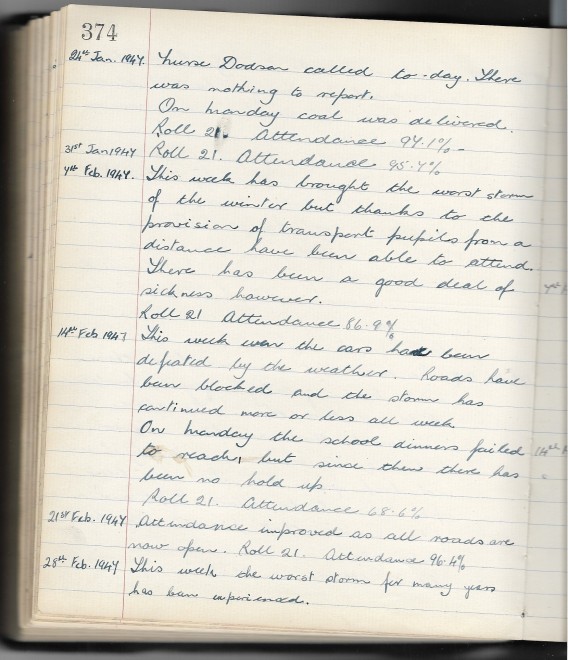 374
24th Jan. 1947. Nurse Dodson called to-day. There
was nothing to report.
On Monday coal was delivered.
Roll 21. Attendance 97.1% -
31st Jan 1947 Roll 21. Attendance 95.7%
7th Feb. 1947. This week has brought the worst storm
of the winter but thanks to the
provision of transport pupils from a
distance have been able to attend.
There has been a good deal of
sickness however.
Roll 21 Attendance 86.9%
14th Feb. 1947 This week even the cars have been
defeated by the weather. Roads have
been blocked and the storm has
continued more or less all week.
On Monday the school dinners failed
to reach, but since then there has
been no hold up
Roll 21. Attendance 68.6%
21st Feb. 1947 Attendance improved as all roads are
now open. Roll 21. Attendance 96.4%
28th Feb. 1947 This week the worst storm for many years
has been experienced.